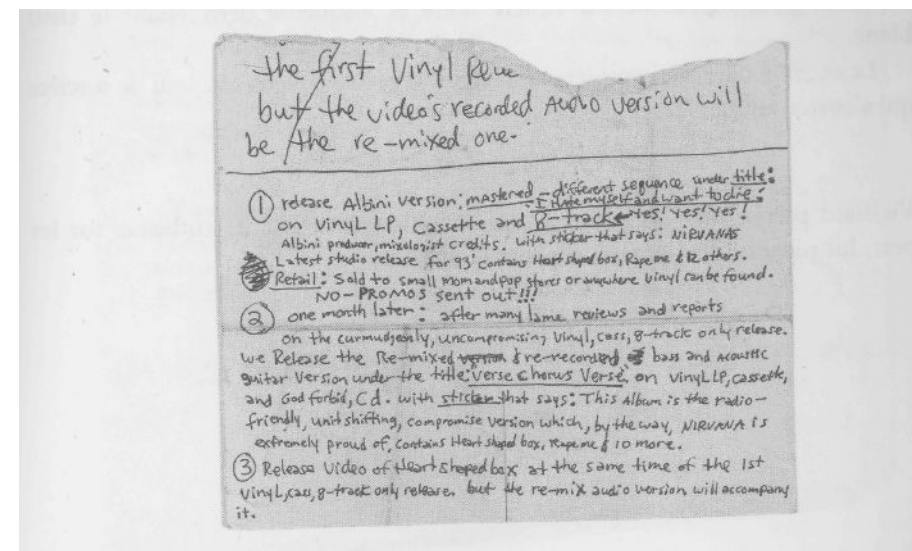 the first Vinyl Rele
but the video's recorded Audio version will
be the re-mixed one.
① release Albini version: mastered - different sequence under title:
I Hate myself and want to die:
on vinyl LP, Cassette and 8-track ← Yes! Yes! Yes!
Albini producer, mixologist credits. with sticker that says: NIRVANAS
Latest studio release for 93' contains Heart shaped box, Rape me & 12 others.
Retail: Sold to small mom and pop stores or anywhere vinyl can be found.
NO-PROMOS sent out!!!
② one month later: after many lame reviews and reports
on the curmudgeonly, uncompromising vinyl, cass, 8-track only release.
we Release the Re-mixed version & re-recorded bass and Acoustic
guitar Version under the title: "Verse Chorus Verse" on vinyl LP, cassette,
and God forbid, Cd. with sticker that says: This Album is the radio-
friendly, unit shifting, compromise version which, by the way, NIRVANA is
extremely proud of, contains Heart shaped box, Rape me & 10 more.
③ Release Video of Heart shaped box at the same time of the 1st
Vinyl, cass, 8-track only release. but the re-mix audio version will accompany
it.